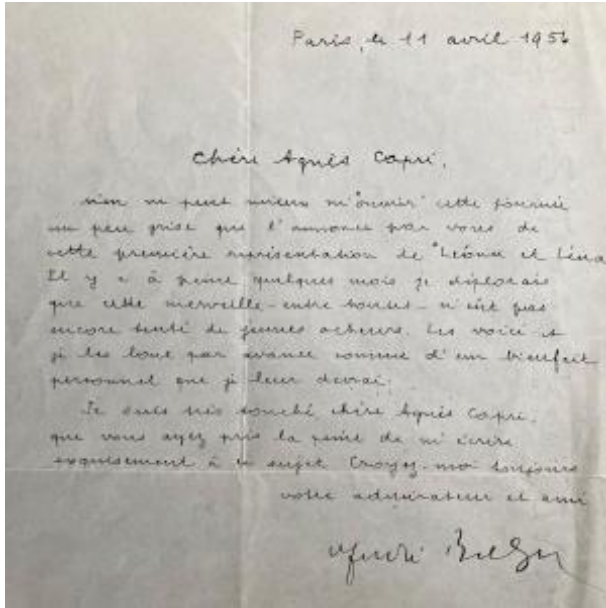 Paris, le 11 avril 1956
Chère Agnès Capri,
rien ne peut mieux m'ouvrir cette journée
un peu grise que l'annonce par vous de
cette première représentation de "Léonce et Léna
Il y a à peine quelques mois je déplorais
que cette merveille - entre toutes - n'eût pas
encore tenté de jeunes acteurs. Les voici et
je les loue par avance comme d'un bienfait
personnel que je leur devrai.
Je suis très touché, chère Agnès Capri,
que vous ayez pris la peine de m'écrire
exquisement à ce sujet. Croyez-moi toujours
votre admirateur et ami